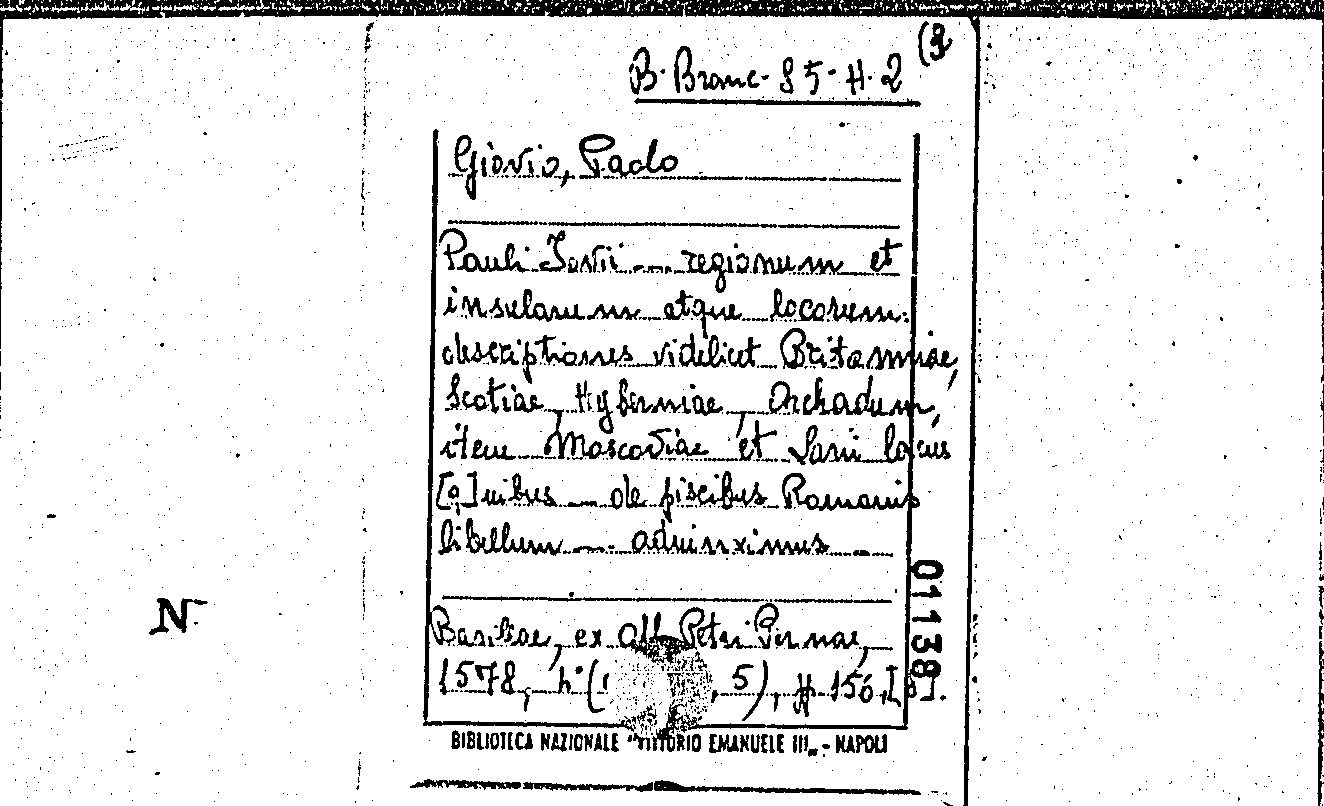 (3
B. Branc. 85. H. 2
Giovio, Paolo
Pauli Jovii ... regionum et
insularum atque locorum:
descriptiones videlicet Britanniae,
Scotiae, Hyberniae, Orchadum,
item Moscoviae et Larii lacus
[q]uibus ... de piscibus Romanis
libellum ... adiunximus ...
Basileae, ex off. Petri Pernae,
1578, 5), pp. 156,
01138
BIBLIOTECA NAZIONALE "VITTORIO EMANUELE III" - NAPOLI
N